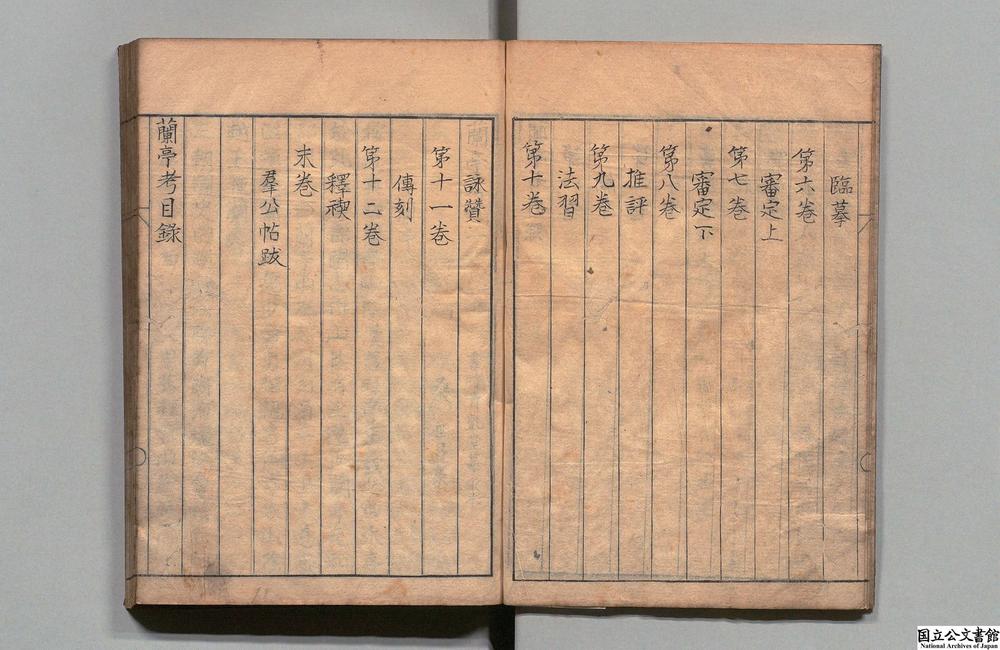 臨摹
第六卷
審定上
第七卷
審定下
第八卷
推評
第九卷
法習
第十卷
詠贊
第十一卷
傳刻
第十二卷
釋禊
末卷
羣公帖跋
蘭亭考目錄
国立公文書館
National Archives of Japan